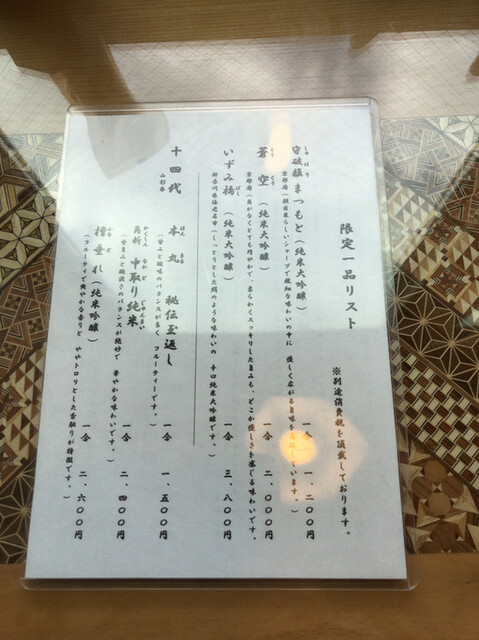 限定一品リスト
※別途消費税を頂戴しております。
守破離 まつもと（純米大吟醸） 一合 一、二〇〇円
しゅ は り
京都府（親日来らしいシャープで繊細な味わいの中に 優しく広がる旨味を
います。）
蒼空（純米大吟醸） 一合 二、〇〇〇円
そう くう
京都府（角がなくとても円やかで、柔らかくスッキリした旨みも、どこか優しさを感じる味わいです。）
いずみ橋（純米大吟醸） 一合 三、八〇〇円
ばし
神奈川県海老名市（しっとりとした絹のような味わいの 辛口純米大吟醸です。）
十四代
山形県
本丸 秘伝玉返し 一合 一、五〇〇円
ほん まる
（甘みと酸味のバランスが良く フルーティーです。）
角新 中取り純米 一合 二、四〇〇円
かくしん なかど じゅんまい
（甘旨みと酸渋さのバランスが絶妙で 華やかな味わいです。）
槽垂れ（純米吟醸） 一合 二、六〇〇円
（フルーティで爽やかな香りと ややトロリとした舌触りが特徴です。）